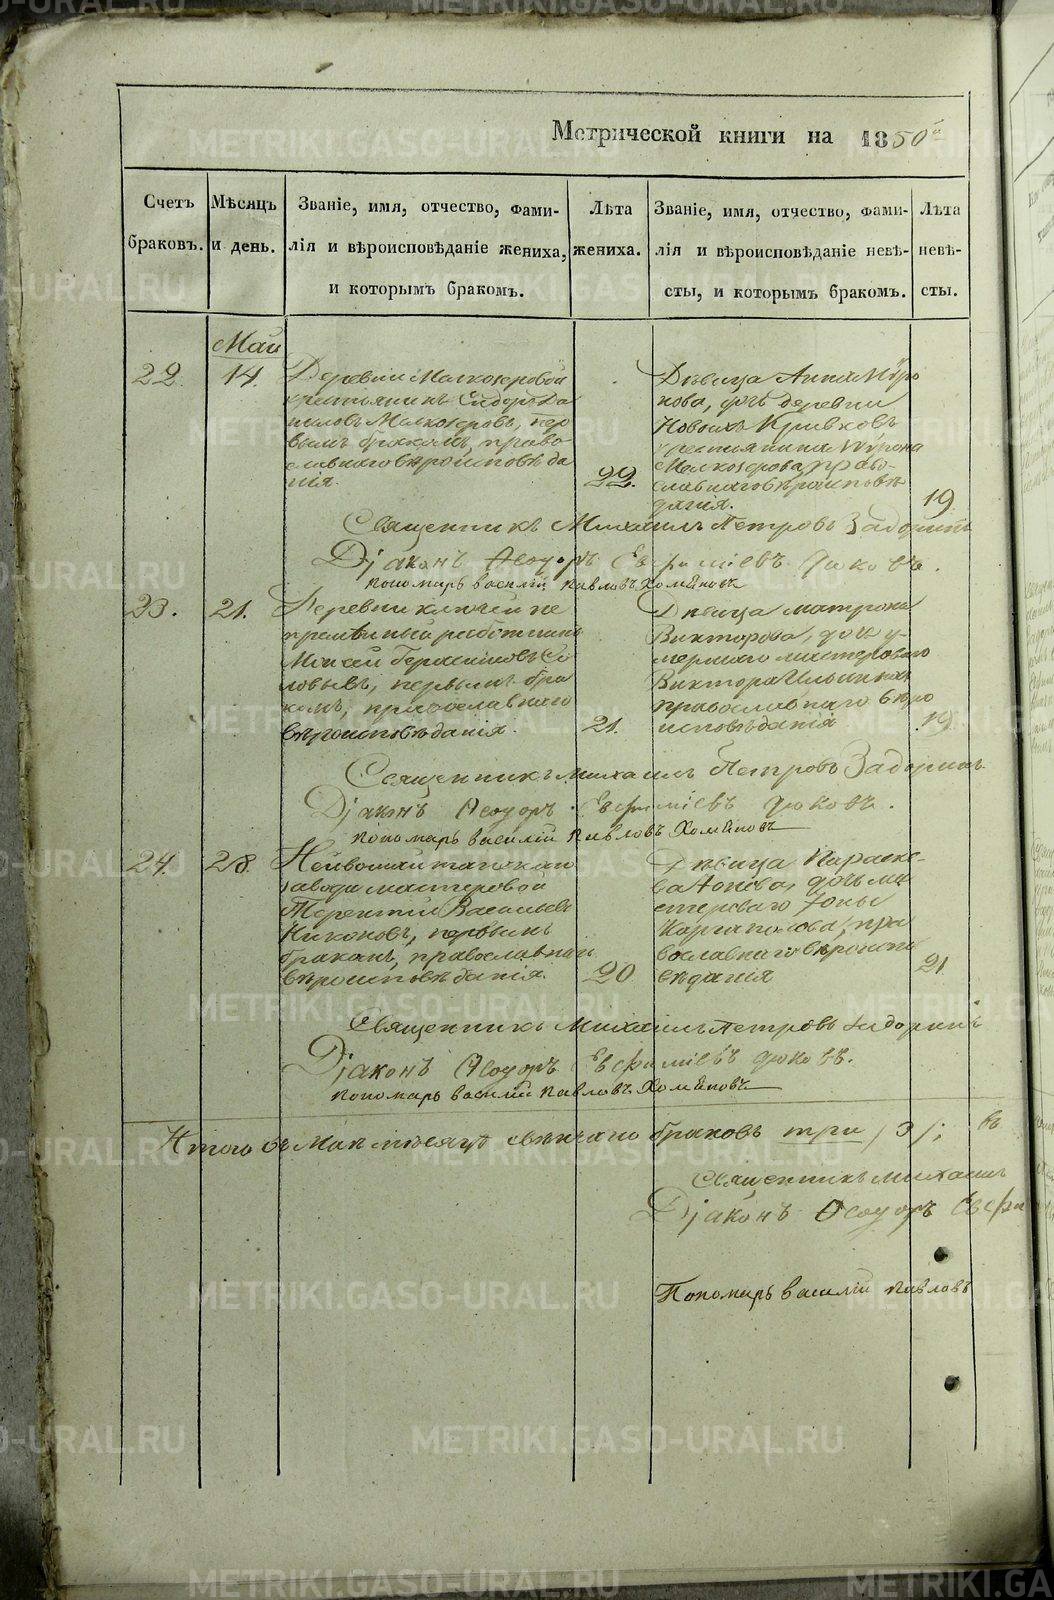 Метрической книги на 1850й
Счетъ браковъ.
Мѣсяцъ и день.
Званіе, имя, отчество, фами-
лія и вѣроисповѣданіе жениха,
и которымъ бракомъ.
Лѣта
жениха.
Званіе, имя, отчество, фами-
лія и вѣроисповѣданіе невѣ-
сты, и которымъ бракомъ.
Лѣта
невѣ-
сты.
Май
22.
14.
Деревни Малкозеровой
крестьянинъ Сидоръ Да
ниловъ Малкозеровъ, пер
вымъ бракомъ, право
славнаго вѣроисповѣда
нія.
22.
Дѣвица Анна Миро
нова, дочь деревни
Новыхъ Кривковъ
крестьянина Мирона
Малкозерова, право-
славнаго вѣроисповѣ
данія.
19.
Священникъ Михаилъ Петровъ Задоринъ
Діаконъ Ѳеодоръ Евфиміевъ
Пономарь Василій Павловъ Хомяковъ
23.
21.
Деревни Ключей не
премѣнный работникъ
Моисей Герасимовъ Со
ловьевъ, первымъ бра
комъ, православнаго
вѣроисповѣданія.
21.
Дѣвица Матрона
Викторова, дочь у-
мершаго мастероваго
Виктора Ильиныхъ
православнаго вѣро
исповѣданія
19.
Священникъ Михаилъ Петровъ Задоринъ
Діаконъ Ѳеодоръ Евфиміевъ
Пономарь Василій Павловъ Хомяковъ
24.
28.
Нейвошайтанскаго
завода мастеровой
Терентій Васильевъ
Никоновъ, первымъ
бракомъ, православнаго
вѣроисповѣданія.
20
Дѣвица Параске-
ва Іонова, дочь ма
стероваго Іоны
Каргаполова, пра
вославнаго вѣроиспо
вѣданія
21
Священникъ Михаилъ Петровъ Задоринъ
Діаконъ Ѳеодоръ Евфиміевъ
Пономарь Василій Павловъ Хомяковъ
Итого въ Маѣ мѣсяцѣ вѣнчано браковъ три /3/; въ
Священникъ Михаилъ
Діаконъ Ѳеодоръ Евфи
Пономарь Василій Павловъ
METRIKI.GASO-URAL.RU